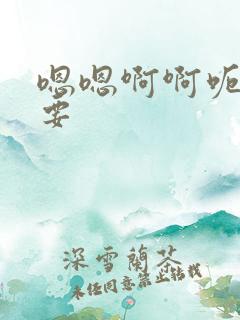 嗯嗯啊啊呃
要
深雪蘭茶
未经同意禁止转载